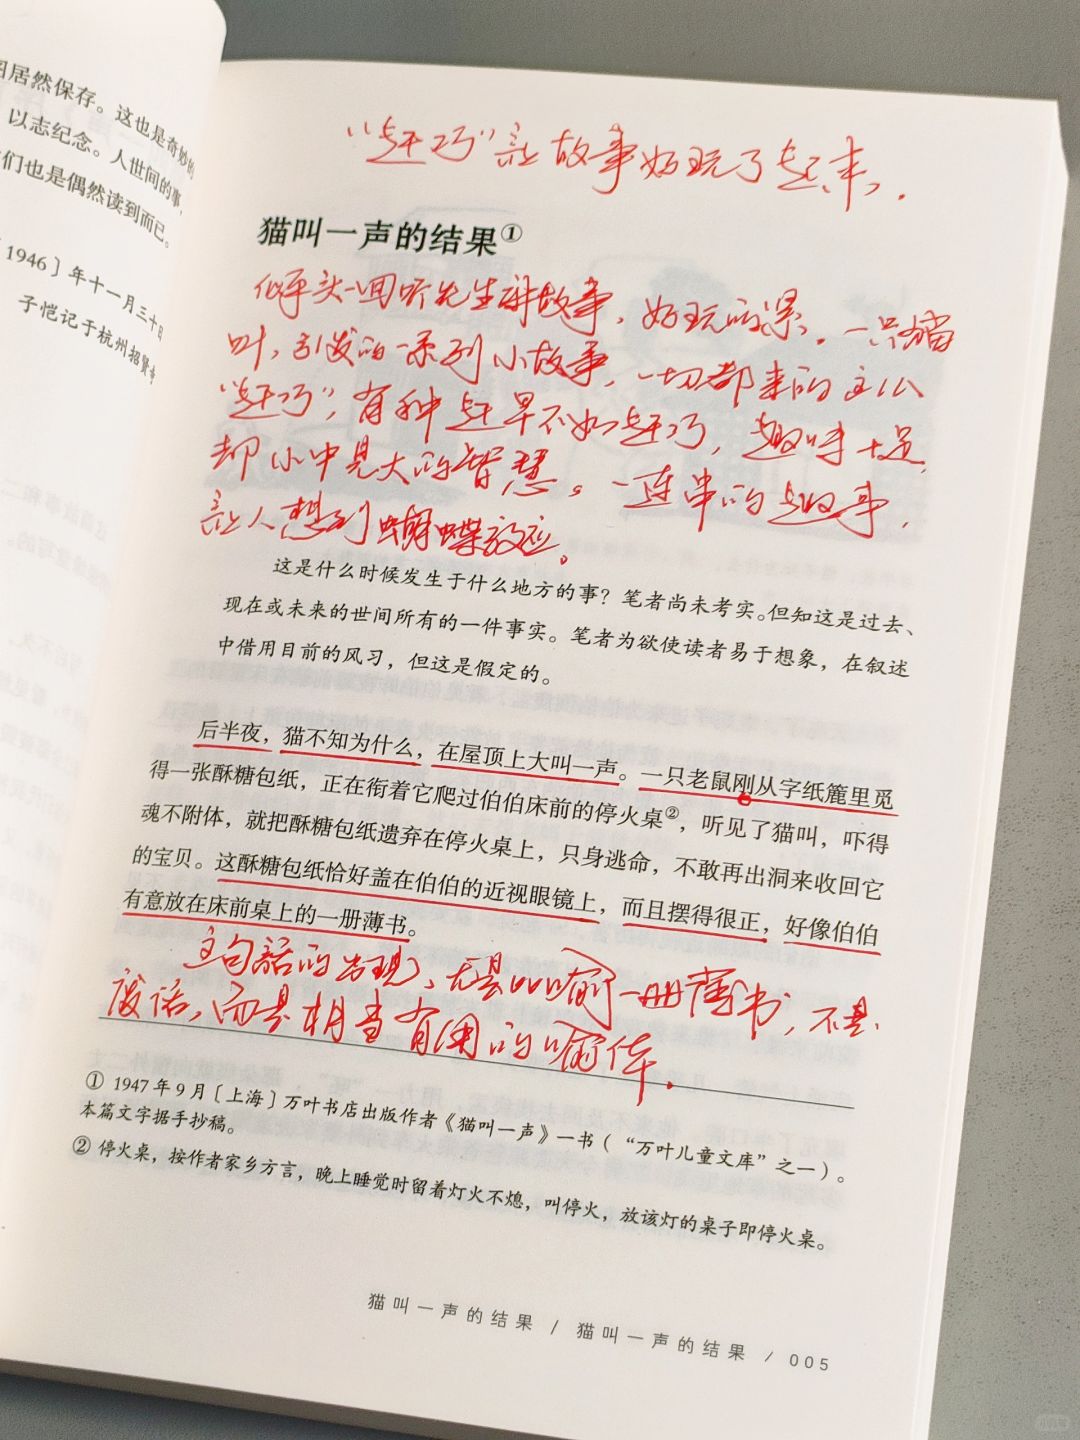 居然保存。这也是奇妙的
以志纪念。人世间的事,
们也是偶然读到而已。
1946〕年十一月三十日
子恺记于杭州招贤寺
“赶巧”让故事好玩了起来,.
猫叫一声的结果①
似乎头一回听先生讲故事,好玩的紧,一只猫
叫,引发的一系列小故事,一切都来的这么
“赶巧”,有种赶早不如赶巧,趣味十足,
却小中见大的智慧。一连串的趣事,
让人想到蝴蝶效应。
这是什么时候发生于什么地方的事?笔者尚未考实。但知这是过去、
现在或未来的世间所有的一件事实。笔者为欲使读者易于想象,在叙述
中借用目前的风习,但这是假定的。
后半夜,猫不知为什么,在屋顶上大叫一声。一只老鼠刚从字纸簏里觅
得一张酥糖包纸,正在衔着它爬过伯伯床前的停火桌②,听见了猫叫,吓得
魂不附体,就把酥糖包纸遗弃在停火桌上,只身逃命,不敢再出洞来收回它
的宝贝。这酥糖包纸恰好盖在伯伯的近视眼镜上,而且摆得很正,好像伯伯
有意放在床前桌上的一册薄书。
这句话的发现,尤是比喻“一册薄书”,不是
废话,而是相当有用的喻体.
① 1947年9月〔上海〕万叶书店出版作者《猫叫一声》一书(“万叶儿童文库”之一)。
本篇文字据手抄稿。
② 停火桌,按作者家乡方言,晚上睡觉时留着灯火不熄,叫停火,放该灯的桌子即停火桌。
猫叫一声的结果 / 猫叫一声的结果 / 005